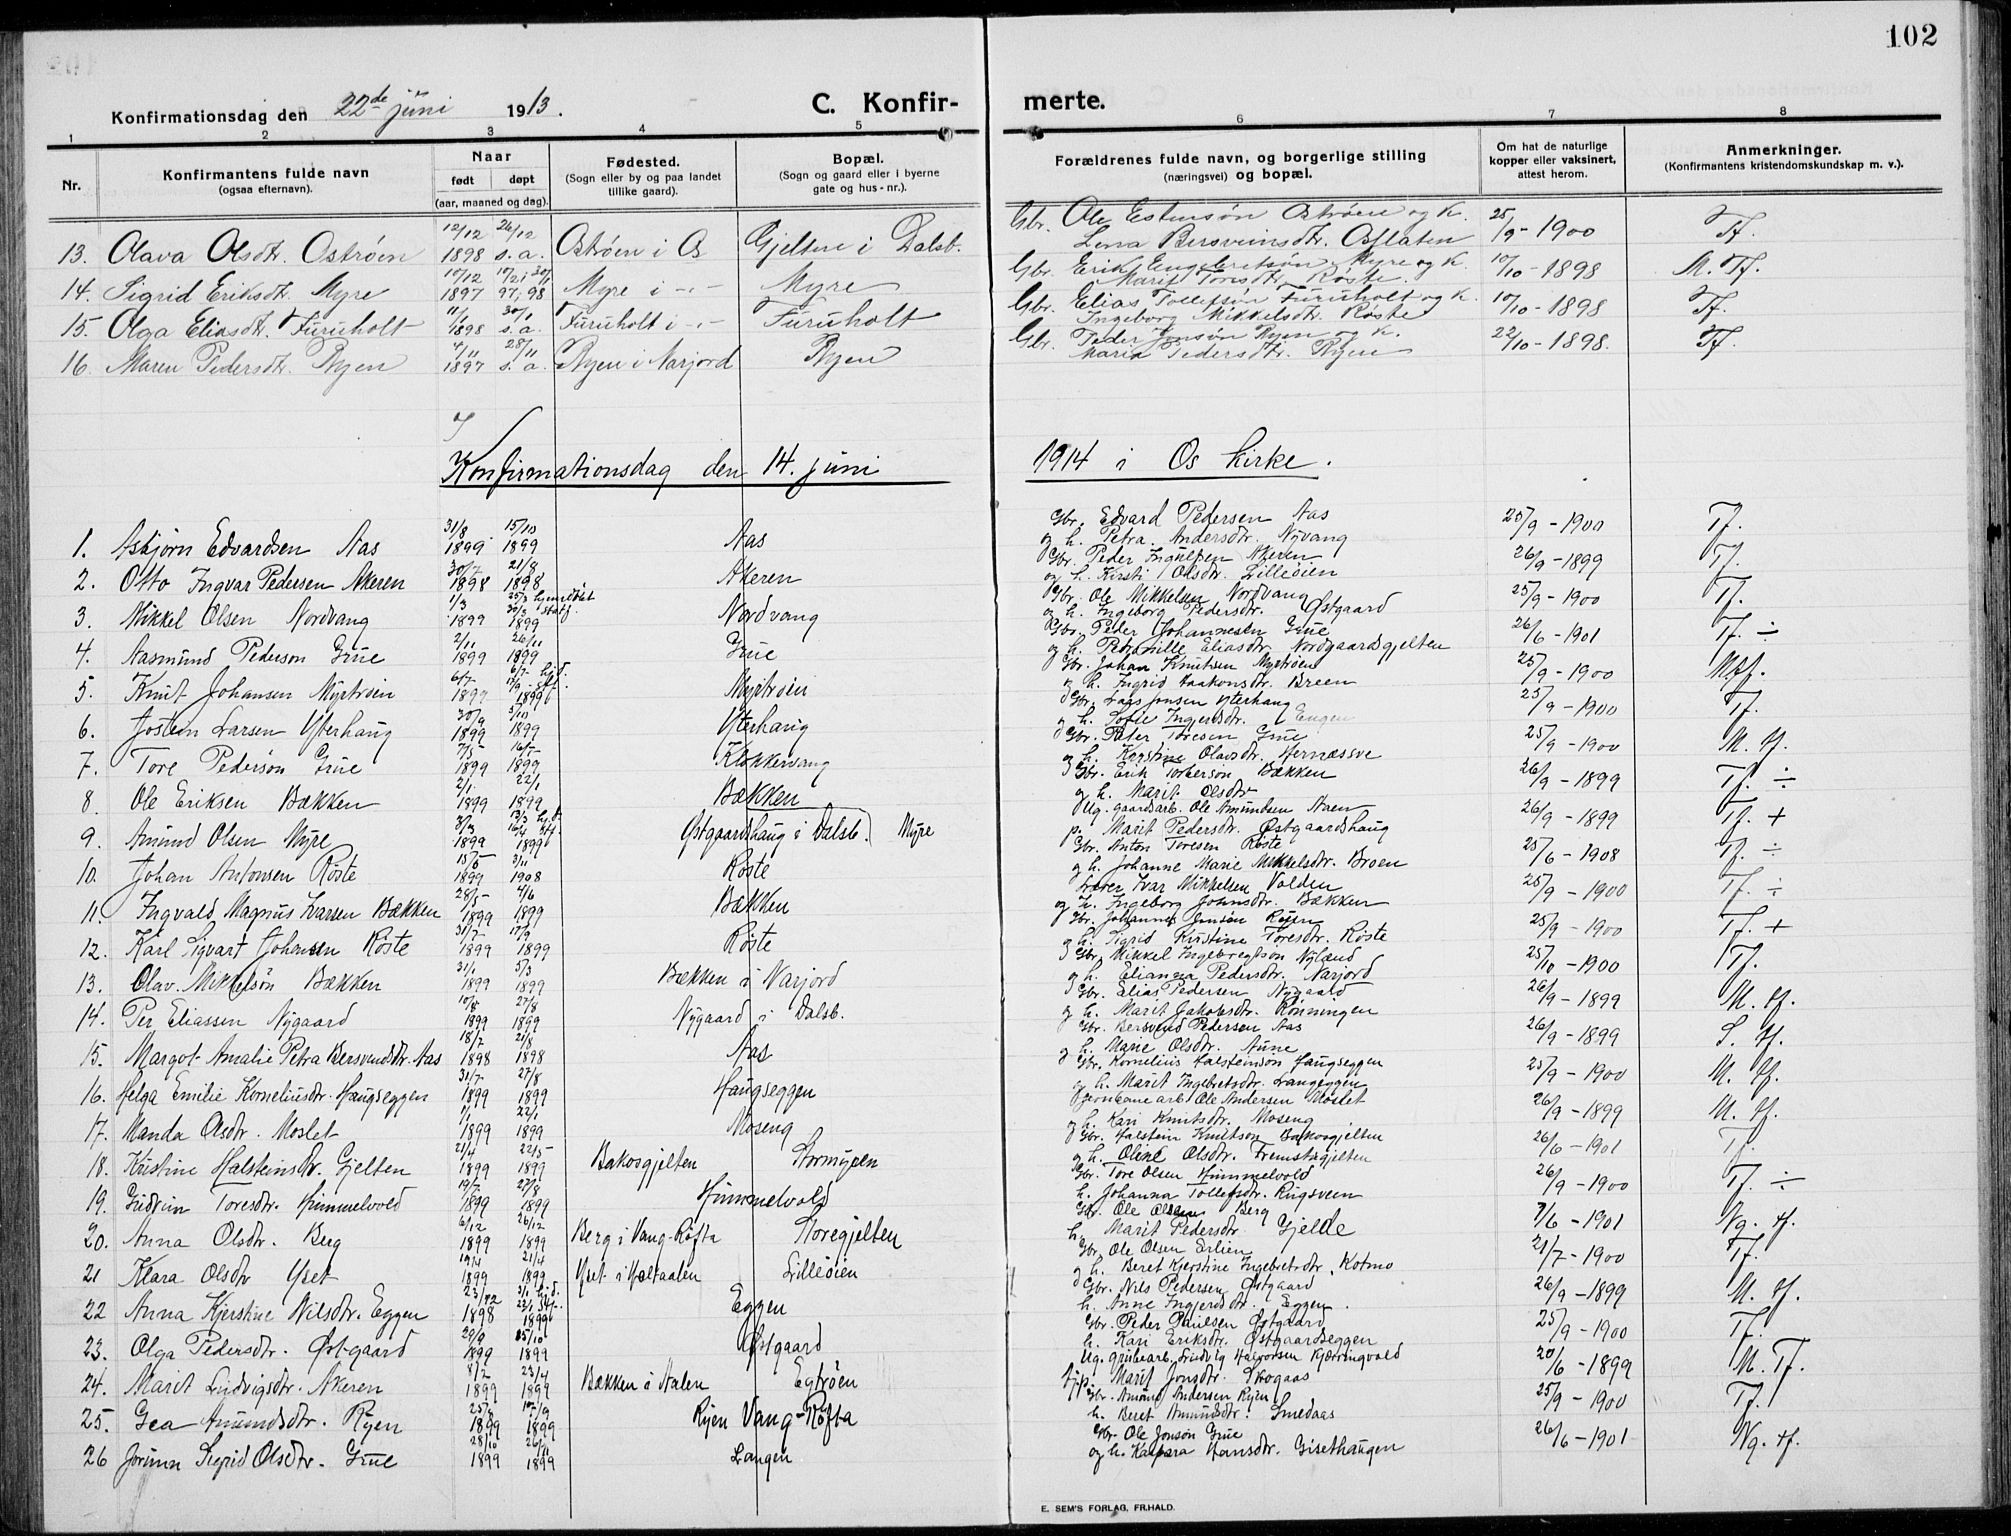 102
Konfirmationsdag den 22de juni 1913.
C. Konfir-
merte.
1 2 3 4 5 6 7 8
Nr.
Konfirmantens fulde navn
(ogsaa efternavn).
Naar
født døpt
(aar, maaned og dag).
Fødested.
(Sogn eller by og paa landet
tillike gaard).
Bopæl.
(Sogn og gaard eller i byerne
gate og hus-nr.).
Forældrenes fulde navn, og borgerlige stilling
(næringsvei) og bopæl.
Om hat de naturlige
kopper eller vaksinert,
attest herom.
Anmerkninger.
(Konfirmantens kristendomskundskap m. v.).
13. Olava Olsdtr. Oströen 12/12 1898 26/12 s. a. Oströen i Os Gjelten i Dalsb. Gbr. Ole Estensön Oströen og k. Lena Bersveinsdtr. Osflaten 25/9 - 1900 Tf.
14. Sigrid Eriksdtr. Myre 10/12 1897 Myre i -"- Myre Gbr. Erik Engebretsön Myre og k. Marit Toresdtr. Röste 10/10 - 1898 M. Tf.
15. Olga Eliasdtr. Furuholt 11/1 1898 30/1 s. a. Furuholt i -"- Furuholt Gbr. Elias Tollefsön Furuholt og k. Ingeborg Mikkelsdtr. Röste 10/10 - 1898 Tf.
16. Maren Pedersdtr. Ryen 4/11 1897 28/11 s. a. Ryen i Narjord Ryen Gbr. Peder Jonsön Ryen og k. Maria Pedersdtr. Ryen 22/10 - 1898. Tf.
Konfirmationsdag den 14. juni 1914 i Os kirke.
1. Asbjörn Edvardsen Aas 31/8 1899 15/10 1899 Aas Gbr. Edvard Pedersen Aas og h. Petra Andersdtr. Nyvang 25/9 - 1900 Tf.
2. Otto Ingvar Pedersen Akeren 30/7 1898 21/8 1898 Akeren Gbr. Peder Ingulfsen Akeren og h. Kirsti Olsdtr. Lilleöien 26/9 - 1899 Tf.
3. Mikkel Olsen Nordvang 1/3 1899 25/3 hjemdöbt 30/3 stadf. 1899 Nordvang Gbr. Ole Mikkelsen Nordvang og h. Ingeborg Pedersdtr. Østgaard 25/9 - 1900 Tf.
4. Aasmund Pederson Grue 2/11 1899 26/11 1899 Grue Gbr. Peder Johannesen Grue og h. Pernille Eliasdtr. Nordgaardsgjelten 26/6 - 1901 Tf. ÷
5. Knut Johansen Myrtröen 6/7 1899 6/7 hjd. 17/9 stf. 1899 Myrtröen Gbr. Johan Knutsen Myrtröen og h. Ingrid Haakonsdtr. Breen 25/9 - 1900 Mtf.
6. Jostein Larsen Ytterhaug 30/9 1899 5/11 1899 Ytterhaug Gbr. Lars Jensen Ytterhaug og h. Sofie Ingerdsdtr. Engen 25/9 - 1900 Tf.
7. Tore Pedersön Grue 7/5 1899 16/5 1899 Klokkervang Gbr. Peter Toresen Grue og h. Kirstine Olavsdtr. Hernæssve 25/9 - 1900 M. tf.
8. Ole Eriksen Bækken 2/1 1899 22/1 1899 Bækken Gbr. Erik Torberson Bækken og h. Marit Olsdtr 26/9 - 1899 Tf. ÷
9. Amund Olsen Myre 3/3 1899 13/3 hjd. 16/4 stf. 1899 Østgaardshaug i Dalsb. Myre Ug. gaardsarb. Ole Amundsen Naen p. Marit Pedersdtr. Østgaardshaug 26/9 - 1899 Tf. +
10. Johan Antonsen Röste 15/5 1899 3/11 1908 Röste Gbr. Anton Toresen Röste og h. Johanne Marie Mikkelsdtr. Broen 25/6 - 1908 Tf. ÷
11. Ingvald Magnus Ivarsen Bækken 28/5 1899 4/6 1899 Bækken Lærer Ivar Mikkelsen Volden og h. Ingeborg Johnsdtr. Bækken 25/9 - 1900 Tf. ÷
12. Karl Sigvart Johansen Röste 31/7 1899 17/9 1899 Röste Gbr. Johannes Jonsön Ryen og h. Sigrid Kristine Toresdtr. Röste 25/9 - 1900 Tf. +
13. Olav Mikkelsön Bækken 31/1 1899 5/3 1899 Bækken i Narjord Gbr. Mikkel Ingebregtson Nyland og h. Elianna Pedersdtr. Narjord 25/10 - 1900 Tf.
14. Per Eliassen Nygaard 10/8 1899 27/8 1899 Nygaard i Dalsb. Gbr. Elias Pedersen Nygaard og h. Marit Jakobsdtr. Rönningen 26/9 - 1899 M. tf.
15. Margot Amalie Petra Bersvendsdtr. Aas 18/7 1898 21/8 1898 Aas Gbr. Bersvend Pedersen Aas og h. Marie Olsdtr. Aune 26/9 - 1899 S. tf.
16. Helga Emilie Korneliusdtr. Haugseggen 31/7 1899 27/8 1899 Haugseggen Gbr. Kornelius Halsteinson Haugseggen og h. Marit Ingebretsdtr. Langeggen 25/9 - 1900 M. tf.
17. Manda Olsdtr. Moslet 1/1 1899 22/1 1899 Moseng Jernbanearb. Ole Andersen Moslet og h. Kari Knutsdtr. Moseng 26/9 - 1899 M. tf.
18. Kristine Halsteinsdtr. Gjelten 21/4 1899 22/5 1899 Bakosgjelten Stormyren Gbr. Halstein Knutson Bakosgjelten og h. Oline Olsdtr. Fremstagjelten 26/6 - 1901 Tf.
19. Gudrun Toresdtr. Himmelvold 19/7 1899 27/8 1899 Himmelvold Gbr. Tore Olsen Himmelvold h. Johanna Tollefsdtr. Ringsveen 26/9 - 1900 Tf. ÷
20. Anna Olsdtr. Berg 6/12 1899 26/12 1899 Berg i Vang-Röfta Storegjelten Gbr. Ole Olsen Berg h. Marit Pedersdtr. Gjelde 7/6 - 1901 Ng. tf.
21 Klara Olsdtr Yset 19/4 1899 21/4 1899 Yset i Holtaalen Lilleöien Gbr. Ole Olsen Erlien og h. Beret Kjerstine Ingebretsdtr. Kotmo 21/7 - 1900 Tf.
22 Anna Kjerstine Nilsdtr. Eggen 23/12 1898 1899 Eggen Gbr. Nils Pedersen Østgaard h. Anne Ingjerdsdtr. Eggen. 26/9 - 1899 M. tf.
23. Olga Pedersdtr. Østgaard 29/9 1899 15/10 1899 Østgaard Gbr. Peder Paulsen Østgaard h. Kari Eriksdtr. Østgaardseggen 25/9 - 1900 Tf.
24. Marit Ludvigsdtr. Akeren 8/2 1899 23/4 1899 Bækken i Aalen Egtröen Ug. grubearb. Ludvig Halvorsen Kjerringvold Marit Jonsdtr. Skogaas 20/6 - 1899 M. Tf.
25. Gea Amundsdtr. Ryen 25/8 1899 10/9 1899 Ryen Vang-Röfta Gbr. Amund Andersen Ryen h. Beret Amundsdtr. Smedaas 25/9 - 1900 Tf.
26 Jorunn Sigrid Olsdtr. Grue 28/10 1899 26/11 1899 Langen Gbr. Ole Jonsön Grue og h. Kaspara Hansdtr. Gisethaugen 26/6 - 1901 Ng. tf.
E. SEM'S FORLAG, FR.HALD.